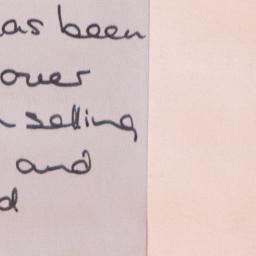 as been
over
selling
and
d